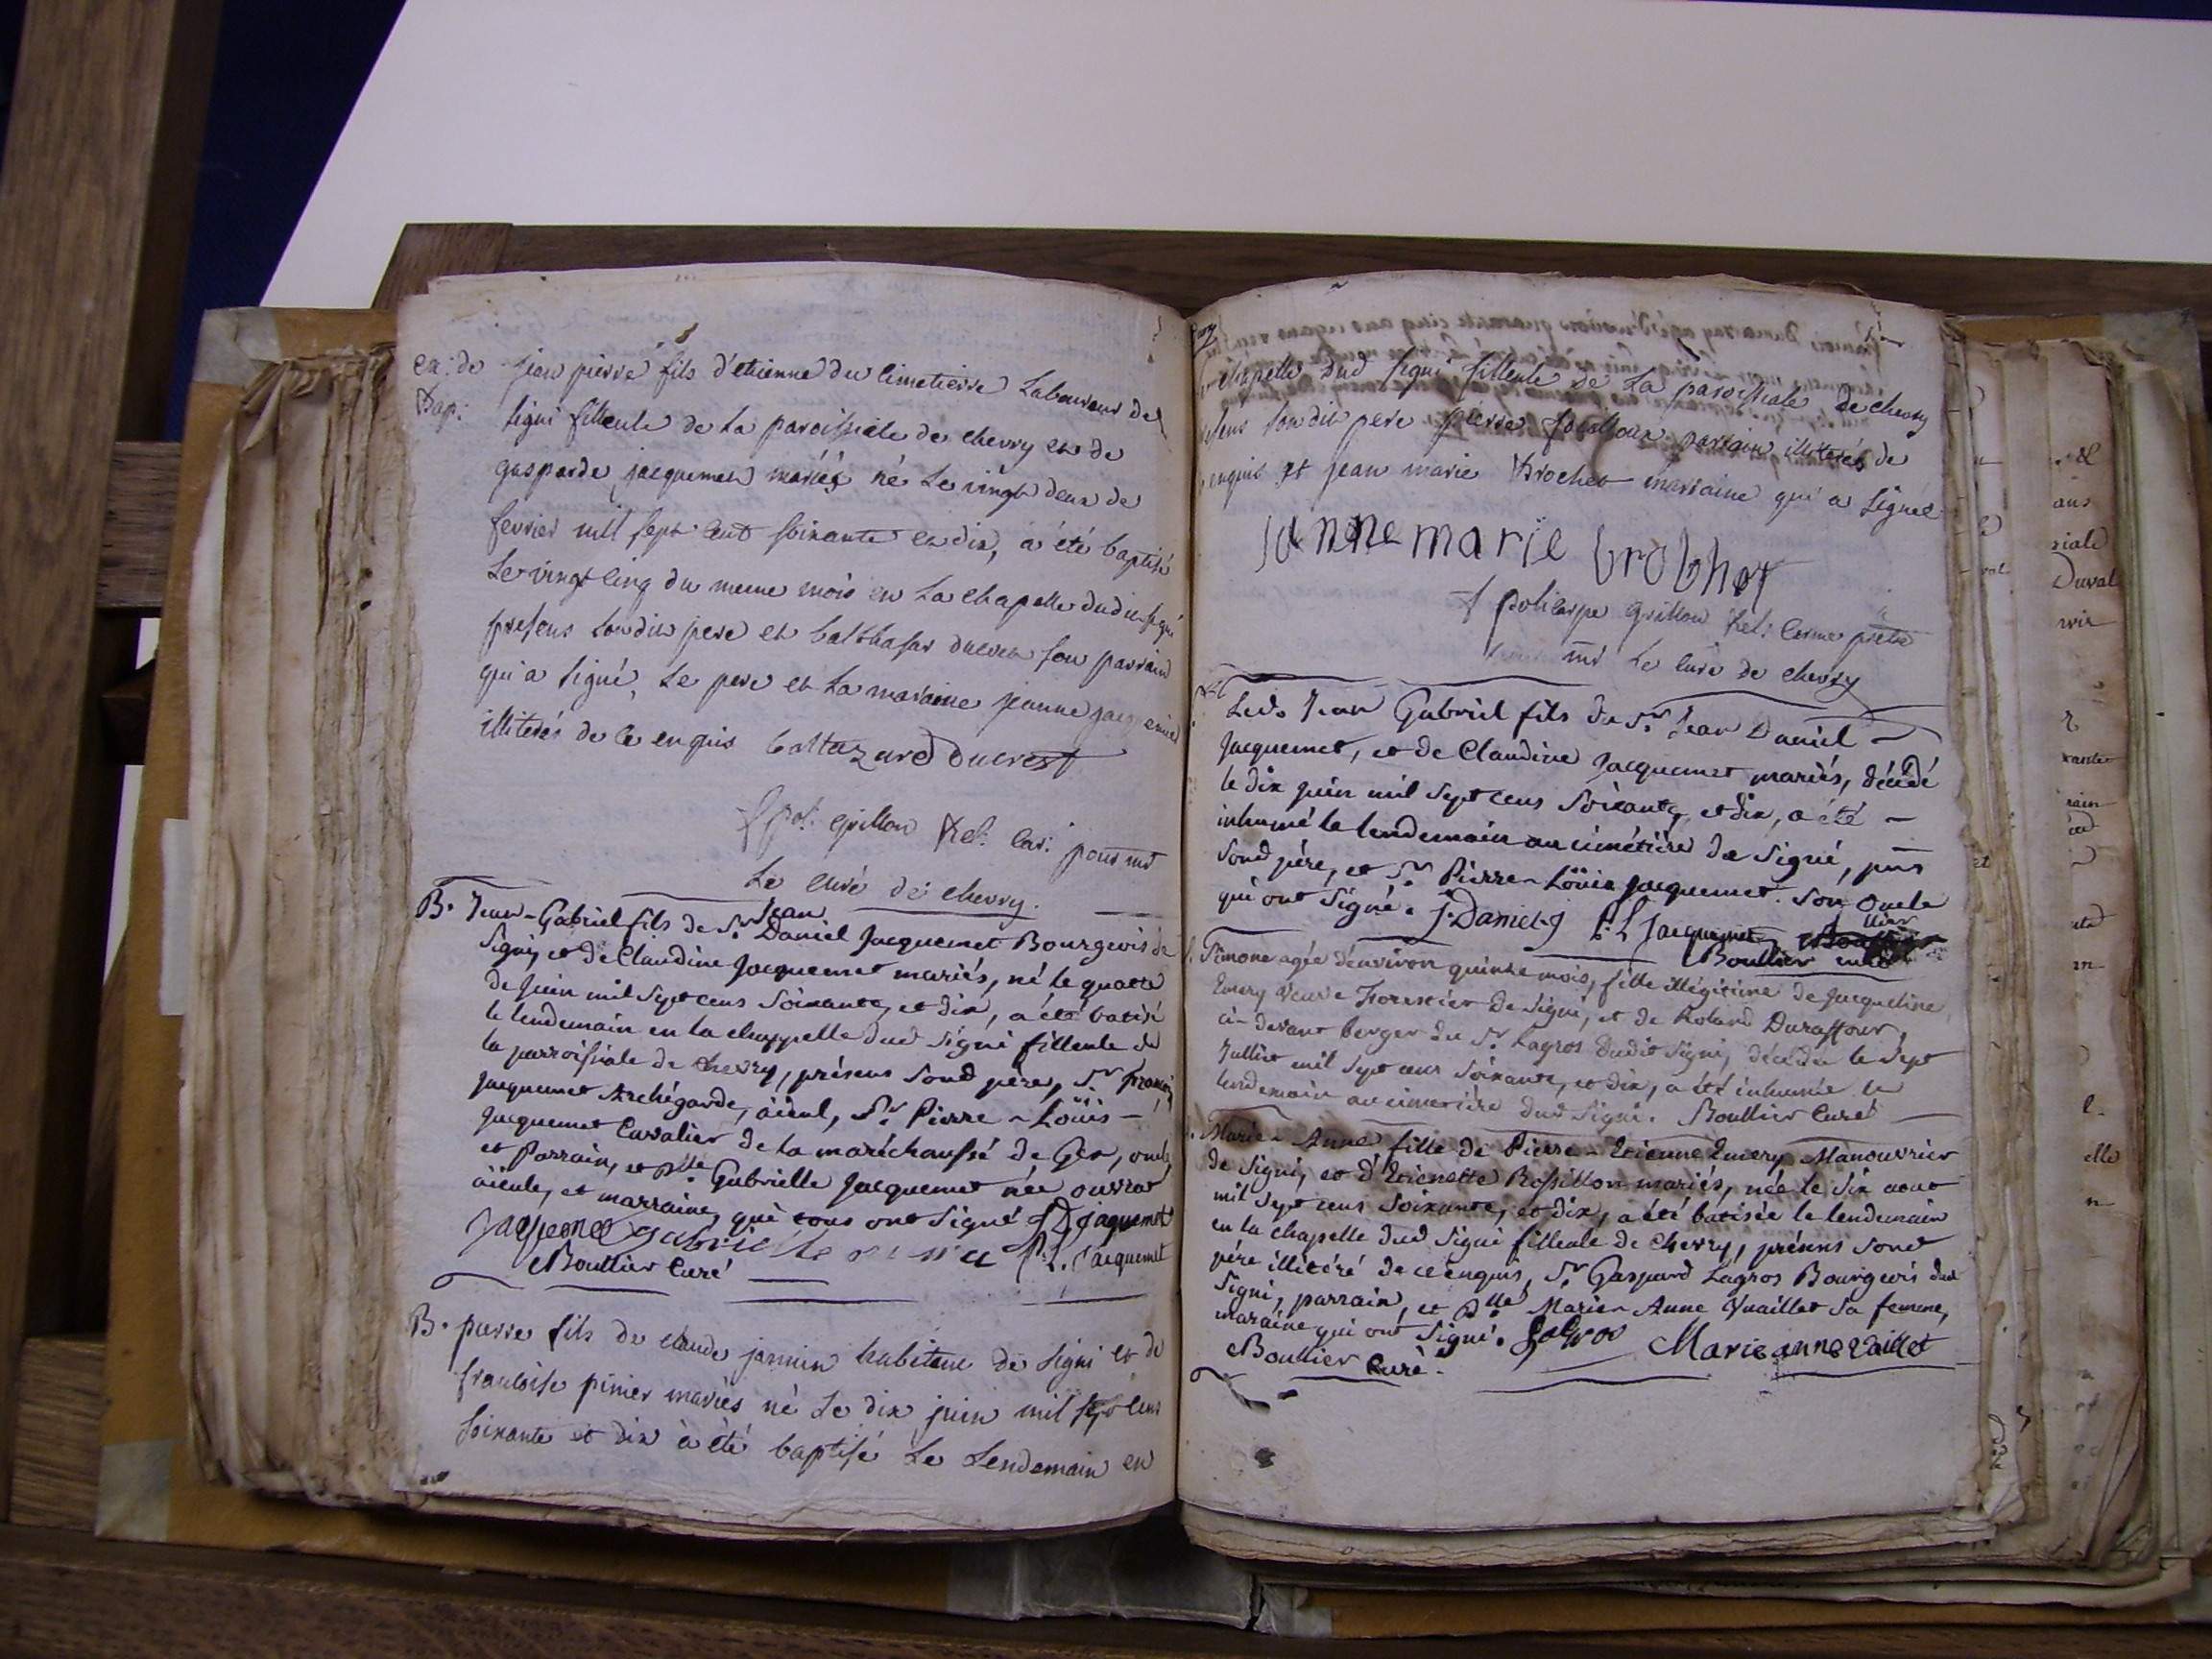 ex: de
Bap:
jean pierre fils d'etienne du cimetierre Laboureur de
Signi filleule de La paroissiale de chevry et de
gasparde jacquemet mariés né Le vingt deux de
fevrier mil sept cent soixante et dix, a été baptisé
Le vingt cinq du meme mois en La chapelle dudit signi
presens sondit pere et balthasar ducret son parrain
qui a signé, Le pere et La maraine jeanne jacquemet
illiterés de ce enquis baltazard ducrest
f pol: grillon Rel: car: pour mr
Le curé de chevry.
B. Jean-Gabriel fils de Sr. Jean Daniel Jacquemet Bourgeois de
Signi, et de Claudine Jacquemet mariés, né le quatre
de juin mil sept cens soixante, et dix, a été batisé
le lendemain en la chappelle dud Signi filleule de
la parroissiale de Chevry, présens sond père, Sr. françois
Jacquemet Archégarde, aïeul, Sr. Pierre-Loüis
Jacquemet Cavalier de la maréchaussé de Gex, oncle
et Parrain, et Dlle. Gabrielle Jacquemet née
aïeule, et marraine, qui tous ont signé J D Jaquemet
Jaquemet Gabrielle P. L. Jacquemet
Boullier Curé
B. pierre fils de claude jasmin habitant de signi et de
francoise pinier mariés né Le dix juin mil sept cens
soixante et dix à été baptisé Le Lendemain en
chapelle dud signi filleule de La paroissiale de chevry
presens son dit pere pierre parrain illiterés de
enquis et jean marie Brochet marraine qui a signée
janne marie brochot
f policarpe grillon Rel: carme pretre
mr Le curé de chevry
Led. Jean Gabriel fils de Sr. Jean Daniel
Jacquemet, et de Claudine Jacquemet mariés, décédé
le dix juin mil sept cens soixante, et dix, a été
inhumé le lendemain au cimétière de Signi, pns
sond père, et Sr. Pierre-Loüis Jacquemet. son oncle
qui ont signé. J. Daniel. J P. L Jacquemet
Boullier curé
Simone agée d'environ quinze mois, fille illégitime de Jacqueline
Emery veuve Forestier de Signi, et de Roland Duraffour,
ci-devant berger du Sr. Lagros dudit Signi, décédée le sept
Juillet mil sept cens soixante, et dix, a été inhumée le
lendemain au cimetière dud Signi. Boullier Curé
Marie-Anne fille de Pierre-Etienne Emery Manouvrier
de Signi, et d'Etienette Rossillon mariés, née le six aout
mil sept cens soixante, et dix, a été batisée le lendemain
en la chapelle dud Signi filleule de Chevry, présens sond
père illitéré de ce enquis, Sr. Gaspard Lagros Bourgeois dud
Signi, parrain, et Dlle Marie-Anne Vuaillet sa femme,
maraine qui ont signé. Lagros Marie anne vaillet
Boullier Curé.
ans
siale
Duval
elle